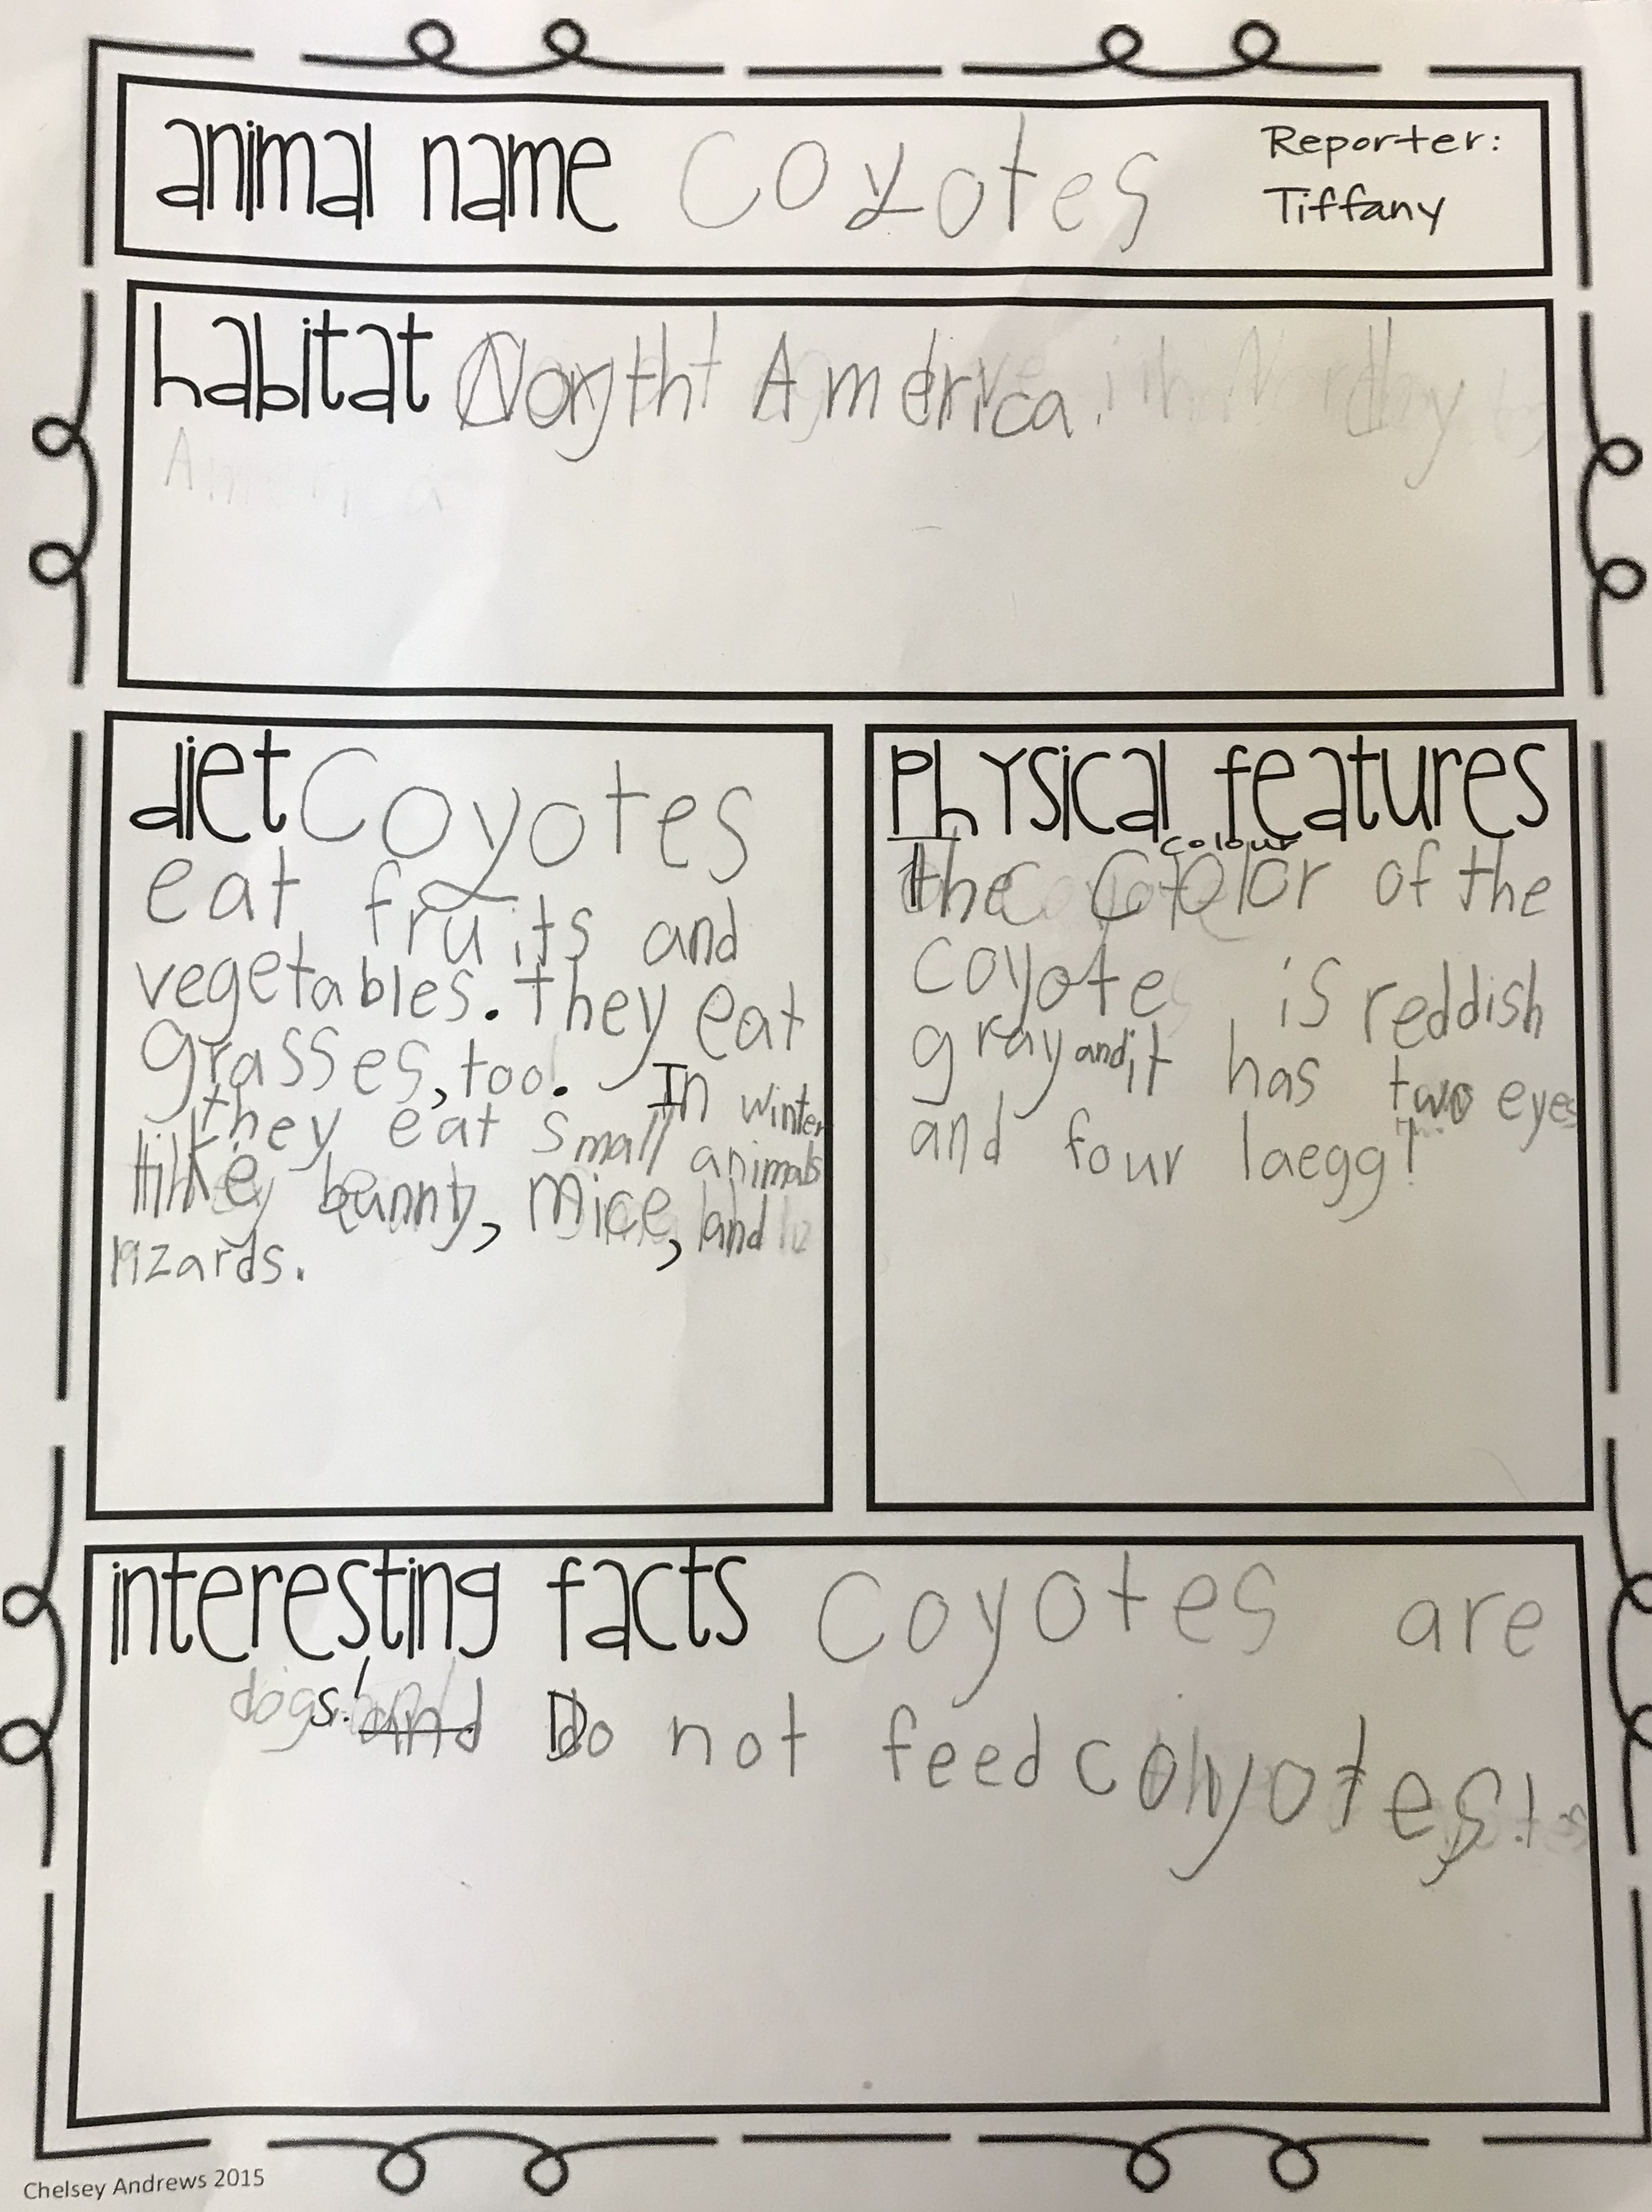 animal name Coyotes
Reporter:
Tiffany
habitat North America.
America
diet Coyotes
eat fruits and
vegetables. They eat
grasses, too. In winter
they eat small animals
like bunny, mice, and
lizards.
Physical features
colour
The Color of the
coyote is reddish
gray and it has two eyes
and four laegg!
interesting facts Coyotes are
dogs! and Do not feed coyotes!
Chelsey Andrews 2015